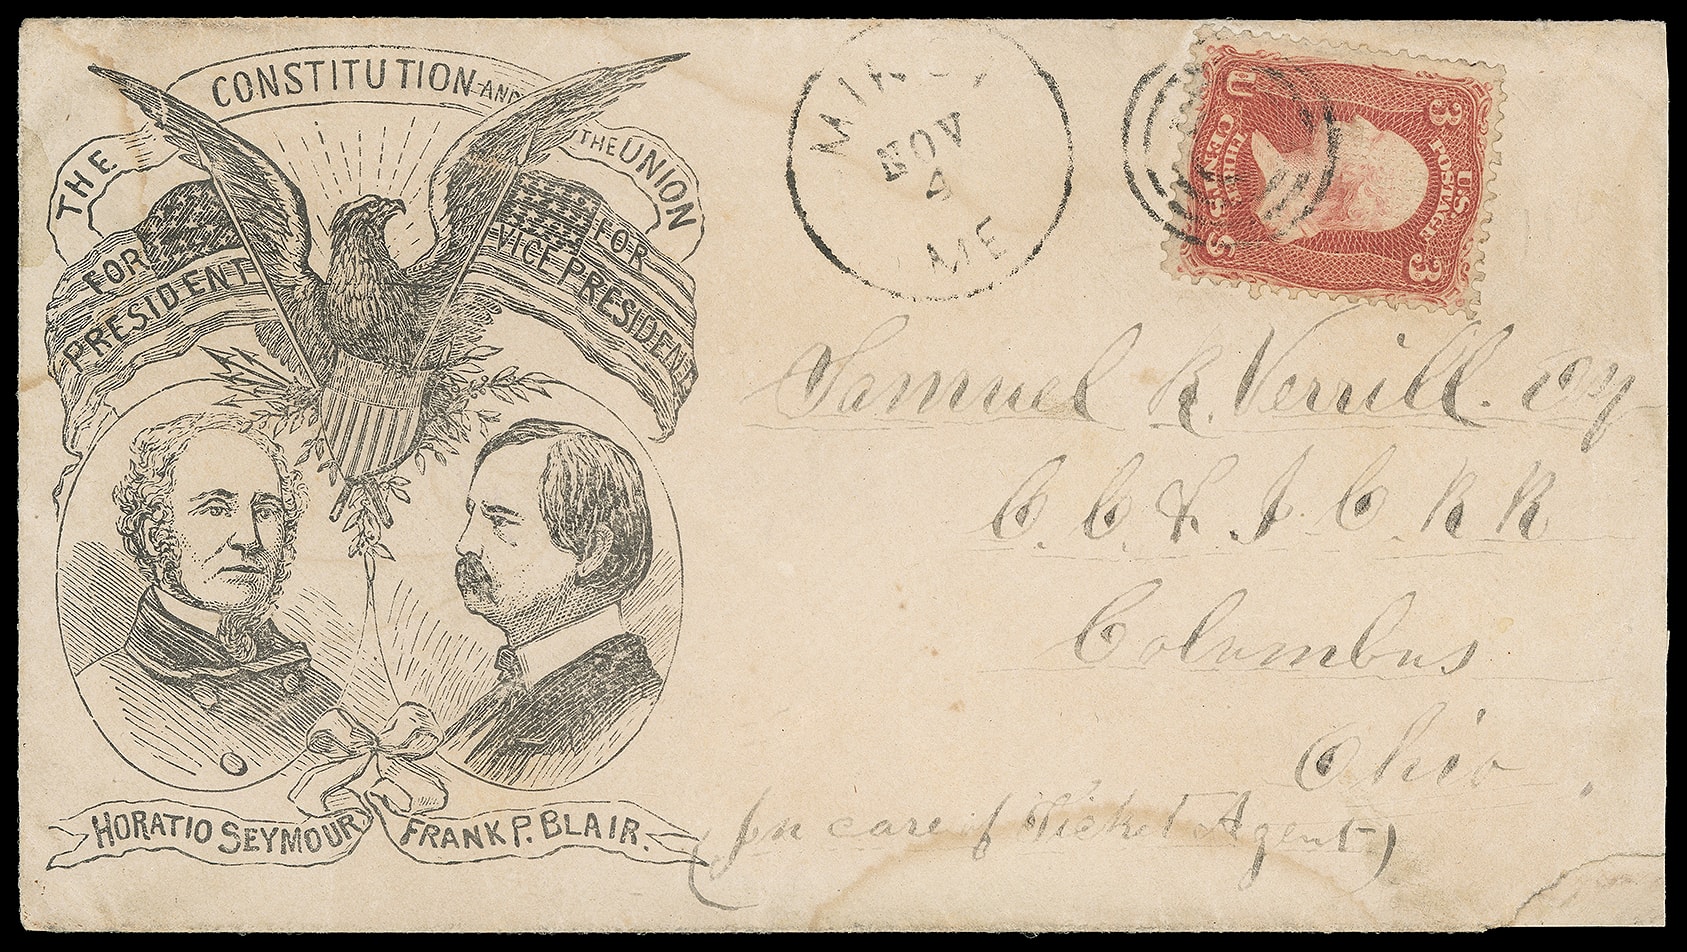 THE CONSTITUTION AND THE UNION
FOR PRESIDENT
FOR VICE PRESIDENT
HORATIO SEYMOUR
FRANK P. BLAIR.
NOV
4
ME
U
3 U.S. POSTAGE 3
THREE CENTS
S
Samuel R. Verrill. Esq
C. C. & I. C. R R
Columbus
Ohio.
(In care of Ticket Agent)